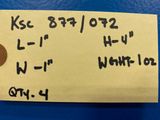 KSC 877/072
L-1" H-4"
W-1" WEIGHT-1 OZ
QTY-4